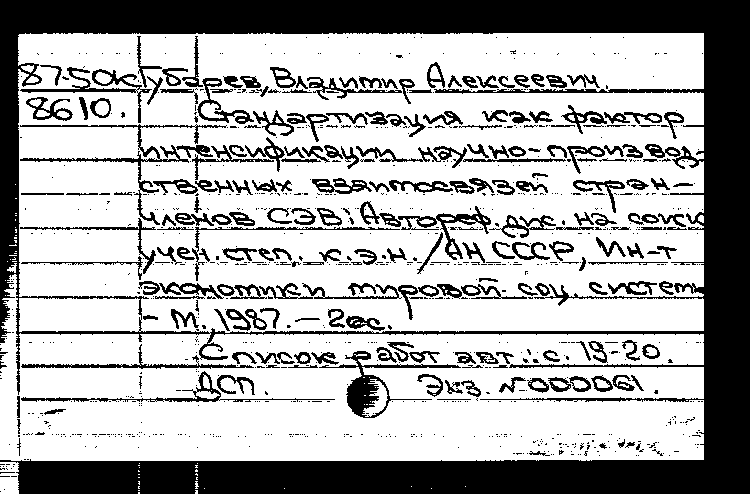 87-50к Губарев, Владимир Алексеевич.
8610. Стандартизация как фактор
интенсификации научно-производ-
ственных взаимосвязей стран-
членов СЭВ: Автореф. дис. на соиск
учен. степ. к.э.н. / АН СССР, Ин-т
экономики мировой соц. систем
- М., 1987. - 20с.
Список работ авт.: с. 19-20.
ДСП. Экз. №000061.